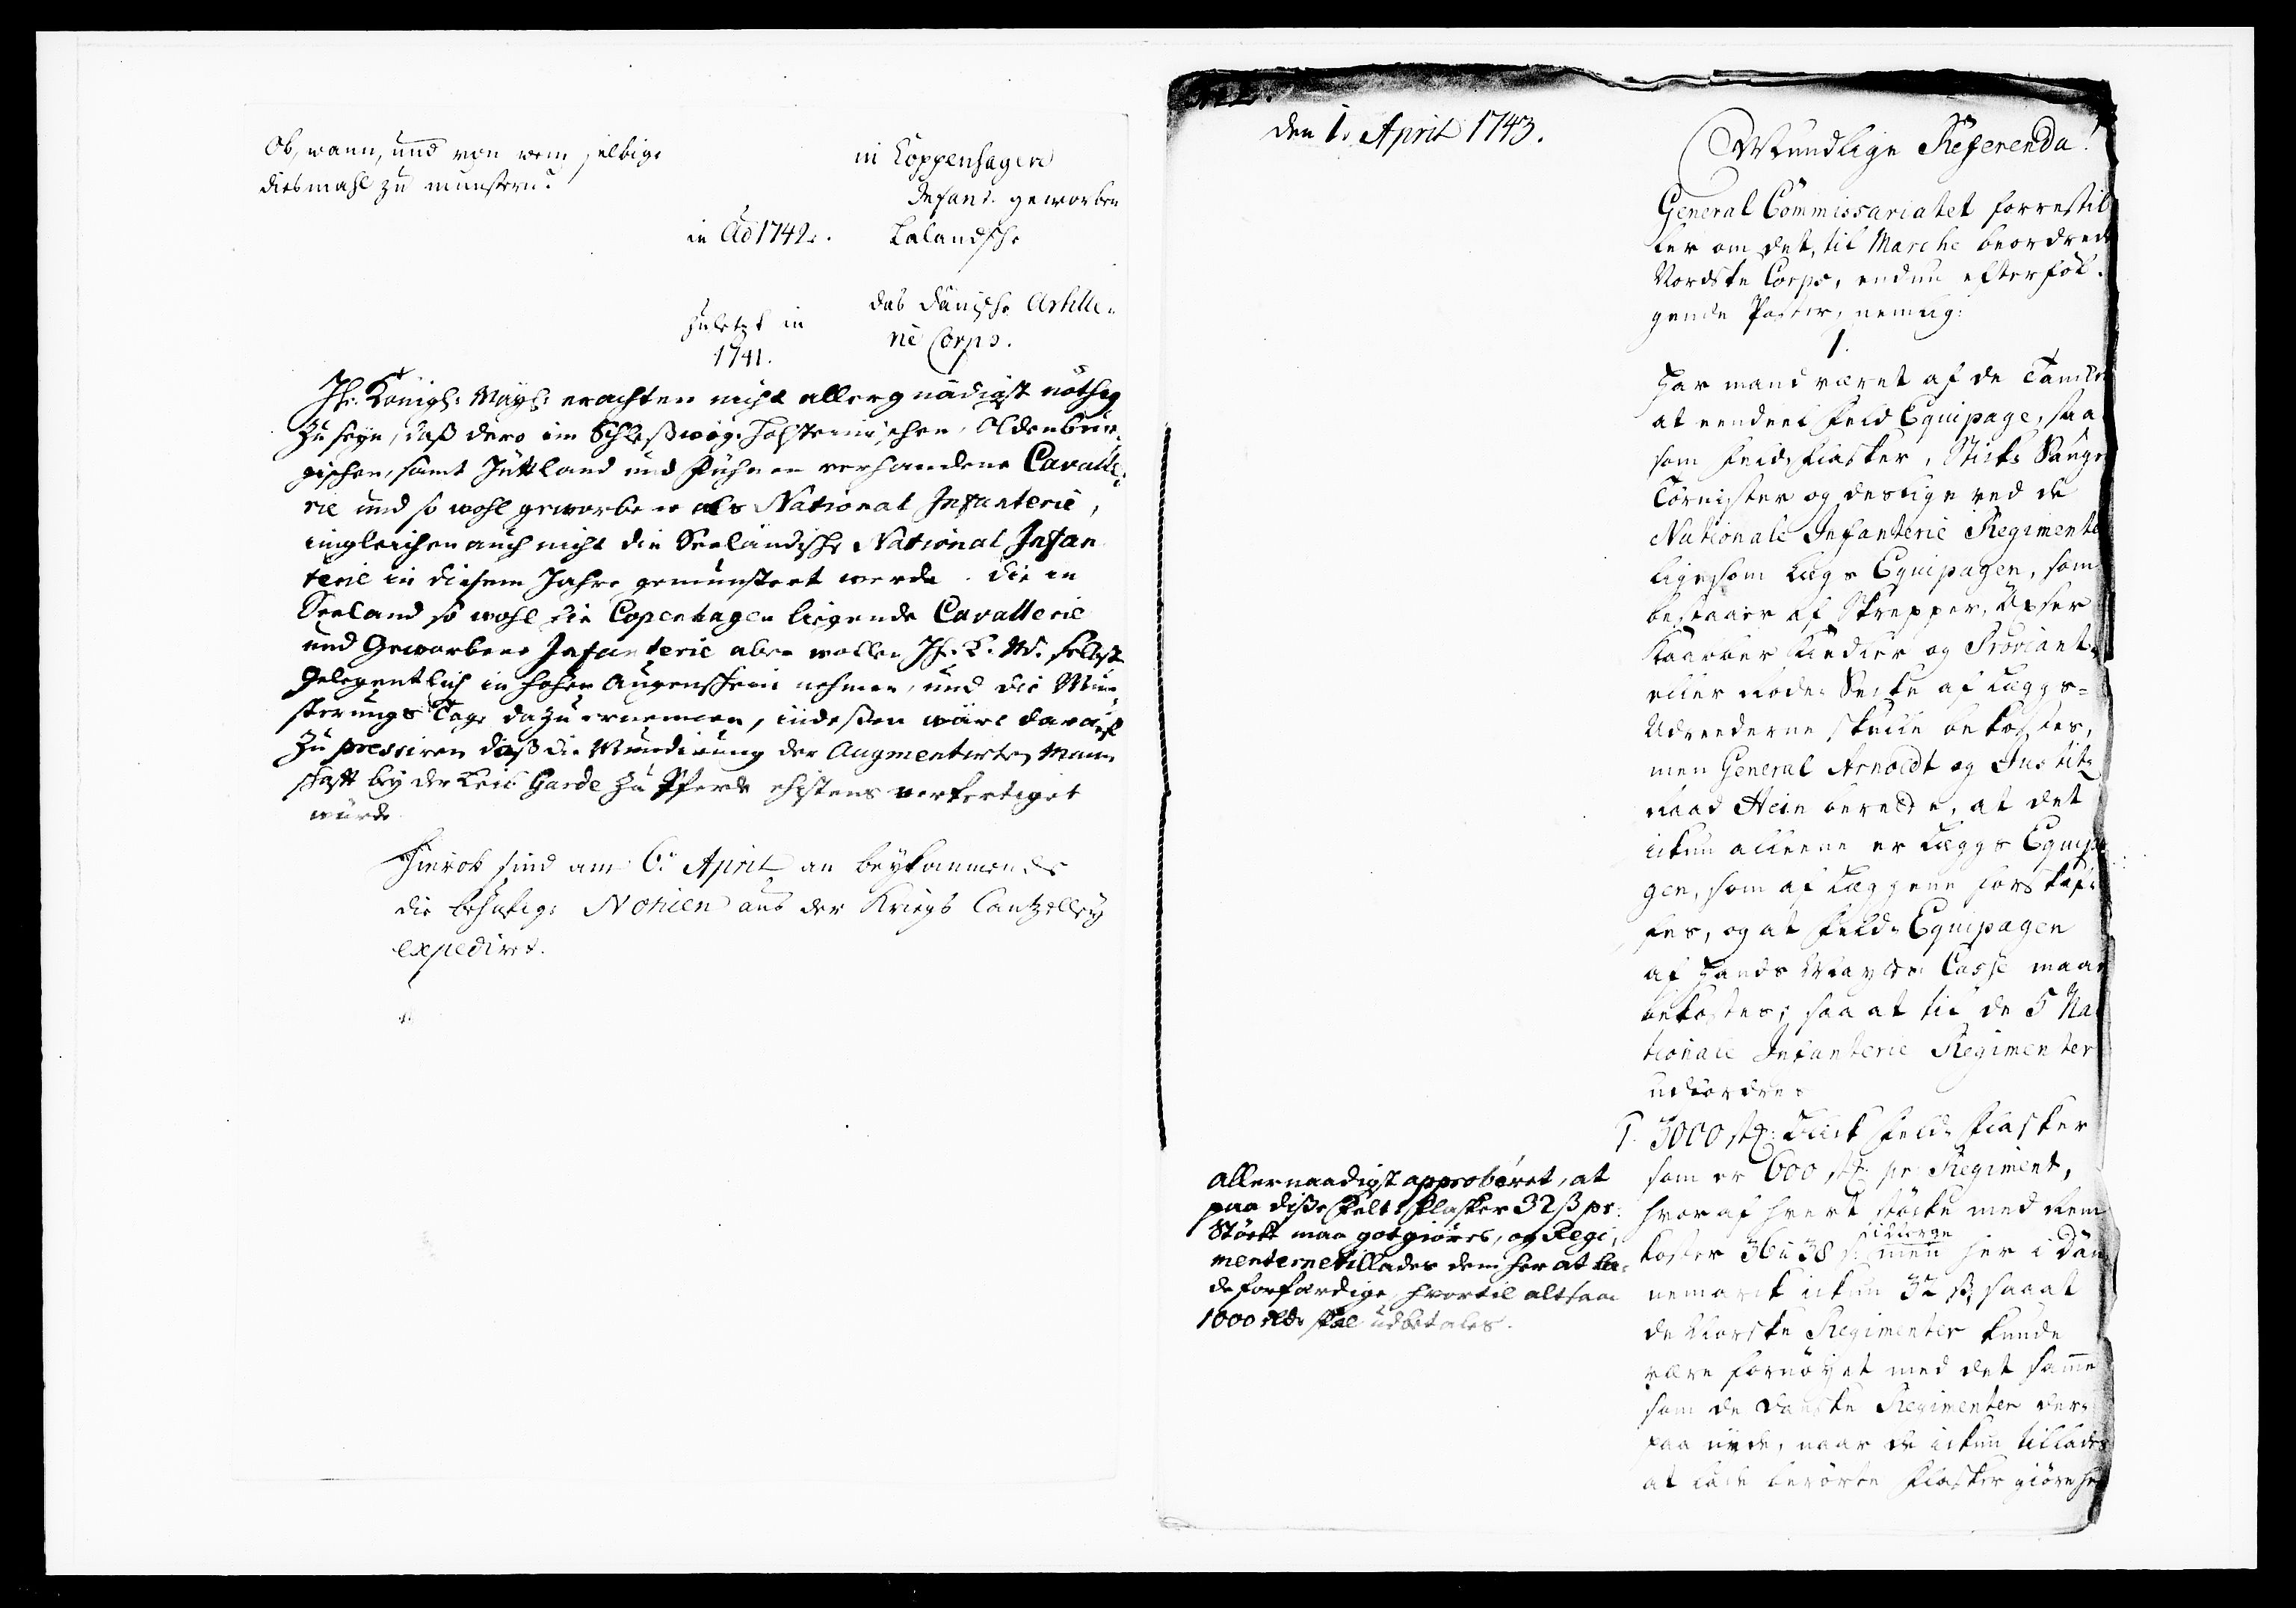 Ob, wann, und von wem selbige
diesmahl zu munstern?
in Coppenhagen
Infant. geworben
in Ao 1742. Lalandsche
zuletzt in das Dänische Artille-
1741. rie Corps.
Ihr. Königl: Mayt: erachten nicht allergnädigst nöthig
zu seyn, daß dero im Schleßwig-Holsteinischen, Oldenbur-
gischen, samt Jüttland und Fühnen verhandene Cavalle-
rie und so wohl geworbene als National Infanterie,
imgleichen auch nicht die Seeländische National Infan
terie in diesem Jahre gemunstert werde. die in
Seeland so wohl die Copenhagen liegende Cavallerie
und Geworbene Infanterie aber wollen Ih. K. M. selbst
gelegentlich in hohen Augenschein nehmen, und die Mun-
sterungs Tage dazu ernennen, indeßen wäre darauf
zu pressiren daß die Mundirung der Augmentirten Mann
schafft bey der Leib Garde zu Pferde ehistens verfertiget
würde
Hierob sind am 6. April an beykommende
die behufige Notizen aus der Kriegs Cantzelley
expediret.
den 1. April 1743.
Mundlige Referenda!
General Commissariatet forrestil
ler om det, til Marche beordrede
Nordske Corps, endnu efterföl-
gende Poster, nemlig:
1.
Har mand været af de Tancker
at eendeel Feld Equipage, saa
som Feld Flasker,
Tornister og deslige ved de
Nationale Infanterie Regimenter
ligesom Lægs Equipagen, som
bestaaer af Skrepper, Öxser
Kaarber Kiedler og Proviant
eller Seke af Læggs-
Udreederne skulle bekostes,
men General Arnoldt og Justitz
Raad Hein berette, at det
ickun alleene er Læggs Equipa
gen, som af Læggene forskaf-
fes, og at Feld-Equipagen
af Hands Mayts Casse maae
bekostes; saa at til de 5 Na
tionale Infanterie Regimenter
udfordres
1. 3000 stk: Blick Feld-Flasker
som er 600 stk: pr Regiment,
hvoraf hvert stöcke med Rem
koster 36 à 38 s: men her i Dan
nemarck ickun 32 ß, saa at
de Norske Regimenter kunde
være fornöyet med det samme
som de Danske Regimenter der-
paa nyde, naar de ickun tillades
at lade berörte Flasker giöre her
Allernaadigst approberet, at
paa diße Felt-Flasker 32 ß pr:
Stöck maa godgiöres, og Regi-
menterne tillades dem her at la-
de forfærdige, hvortil altsaa
1000 rdlr skal udbetales.